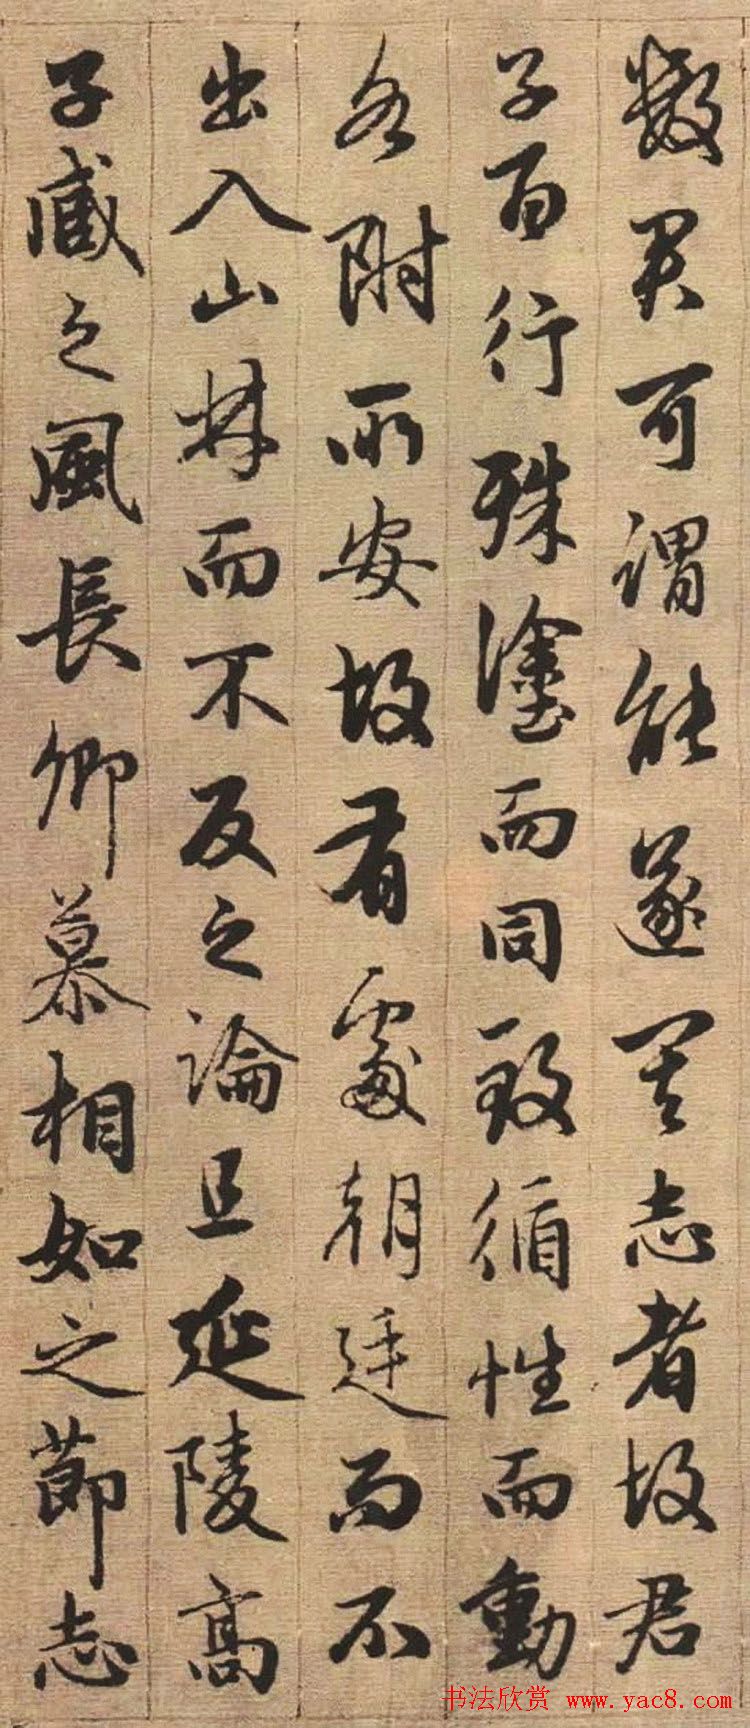 數君可謂能遂其志者故君
子百行殊塗而同致循性而動
各附所安故有處朝廷而不
出入山林而不反之論且延陵高
子臧之風長卿慕相如之節志
书法欣赏 www.yac8.com